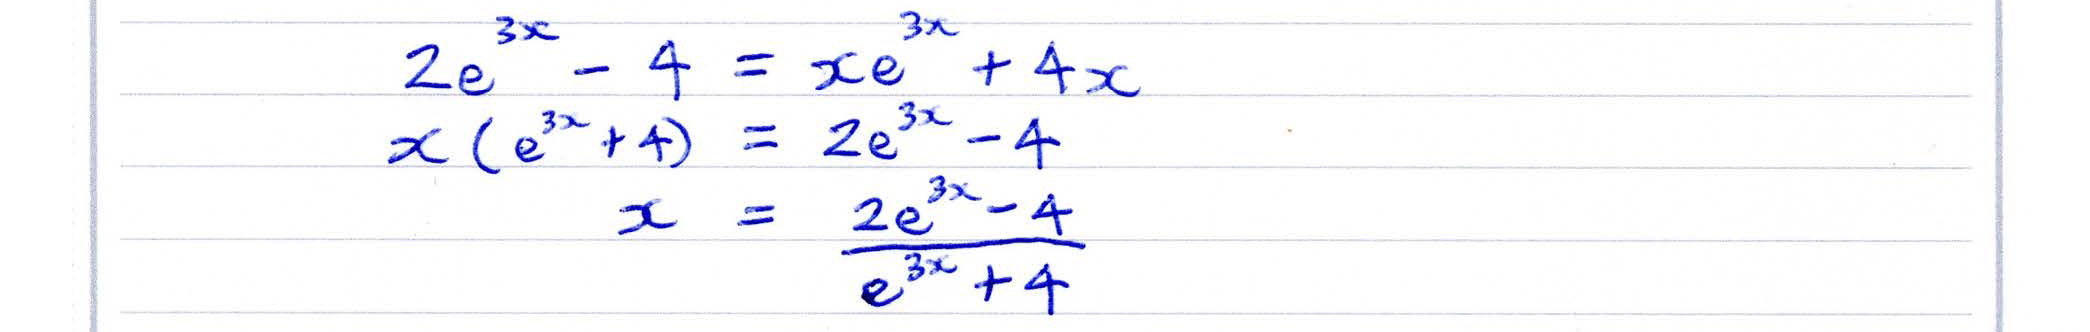 2e^{3x} - 4 = xe^{3x} + 4x
x(e^{3x} + 4) = 2e^{3x} - 4
x = \frac{2e^{3x} - 4}{e^{3x} + 4}